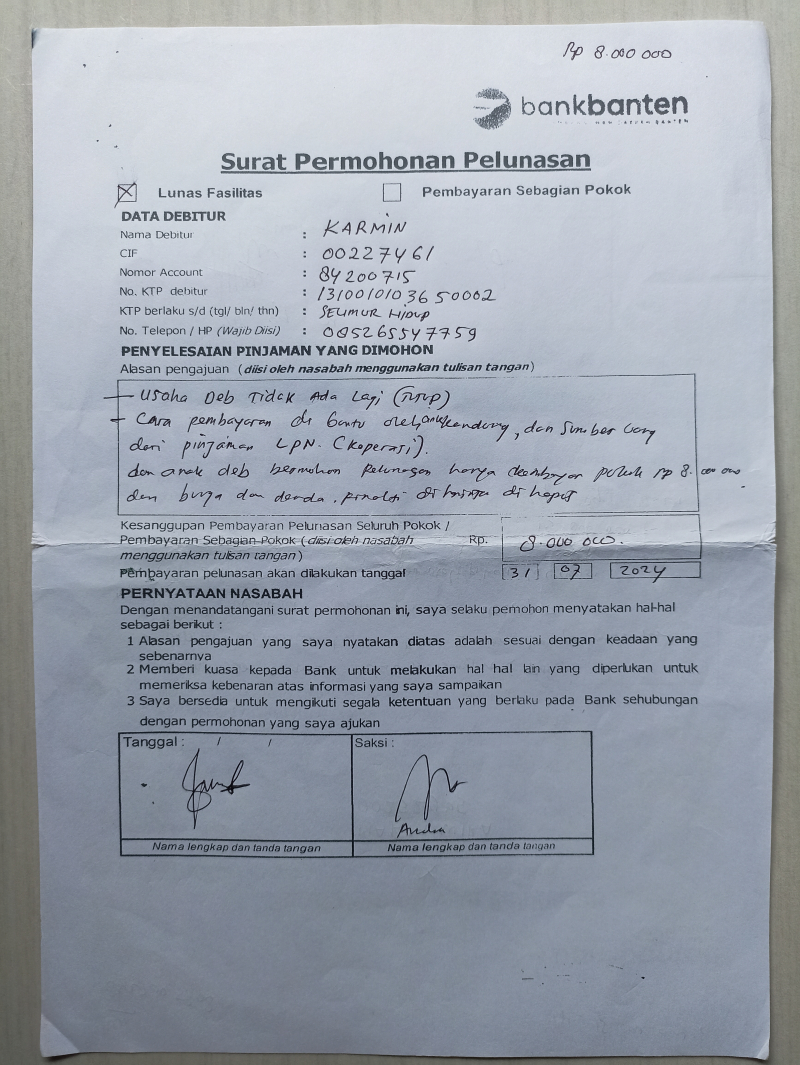 Rp 8.000 000
bankbanten
Surat Permohonan Pelunasan
Lunas Fasilitas Pembayaran Sebagian Pokok
DATA DEBITUR
Nama Debitur : KARMIN
CIF : 00227461
Nomor Account : 84200715
No. KTP debitur : 1310010103650002
KTP berlaku s/d (tgl/ bln/ thn) : SEUMUR HIDUP
No. Telepon / HP (Wajib Diisi) : 085265547759
PENYELESAIAN PINJAMAN YANG DIMOHON
Alasan pengajuan (diisi oleh nasabah menggunakan tulisan tangan)
- Usaha Deb Tidak Ada Lagi (Tutup)
- Cara pembayaran di bantu oleh anak kandung, dan Sumber uang
dari pinjaman LPN. (Koperasi).
dan anak deb bermohon Pelunasan hanya pokok Rp 8.000 000
dan bunga dan denda, di hapus
Kesanggupan Pembayaran Pelunasan Seluruh Pokok /
Pembayaran Sebagian Pokok (diisi oleh nasabah Rp. 8.000 000.
menggunakan tulisan tangan)
Pembayaran pelunasan akan dilakukan tanggal 31 07 2024
PERNYATAAN NASABAH
Dengan menandatangani surat permohonan ini, saya selaku pemohon menyatakan hal-hal
sebagai berikut :
1 Alasan pengajuan yang saya nyatakan diatas adalah sesuai dengan keadaan yang
sebenarnya
2 Memberi kuasa kepada Bank untuk melakukan hal hal lain yang diperlukan untuk
memeriksa kebenaran atas informasi yang saya sampaikan
3 Saya bersedia untuk mengikuti segala ketentuan yang berlaku pada Bank sehubungan
dengan permohonan yang saya ajukan
Tanggal : / / Saksi :
Andra
Nama lengkap dan tanda tangan Nama lengkap dan tanda tangan